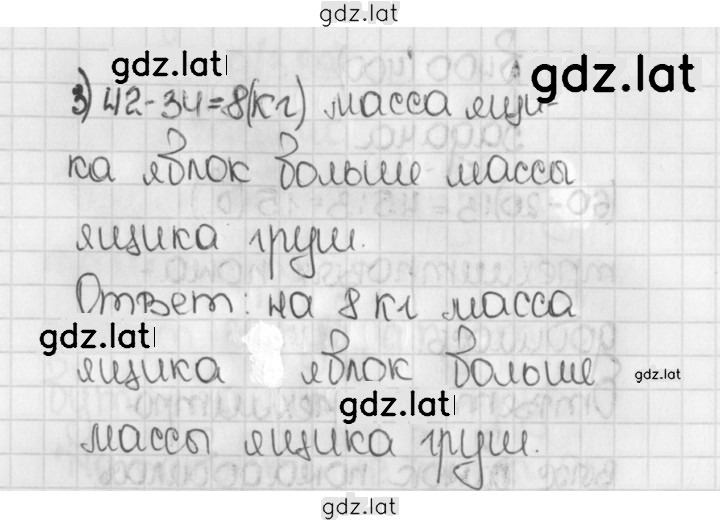 gdz.lat
gdz.lat
gdz.lat
3) 42-34=8(кг) масса ящи-
ка яблок больше массы
ящика груш.
Ответ: на 8 кг масса
gdz.lat
ящика яблок больше
gdz.lat
gdz.lat
массы ящика груш.
gdz.lat